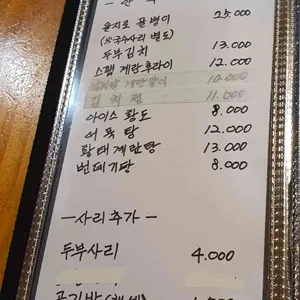 을지로 골뱅이 25.000
(※국수사리 별도)
두부김치 13.000
스팸 계란후라이 12.000
계란말이 10.000
김치전 11.000
아이스 황도 8.000
어묵탕 12.000
황태계란탕 13.000
번데기탕 8.000
—사리추가—
두부사리 4.000
공기밥